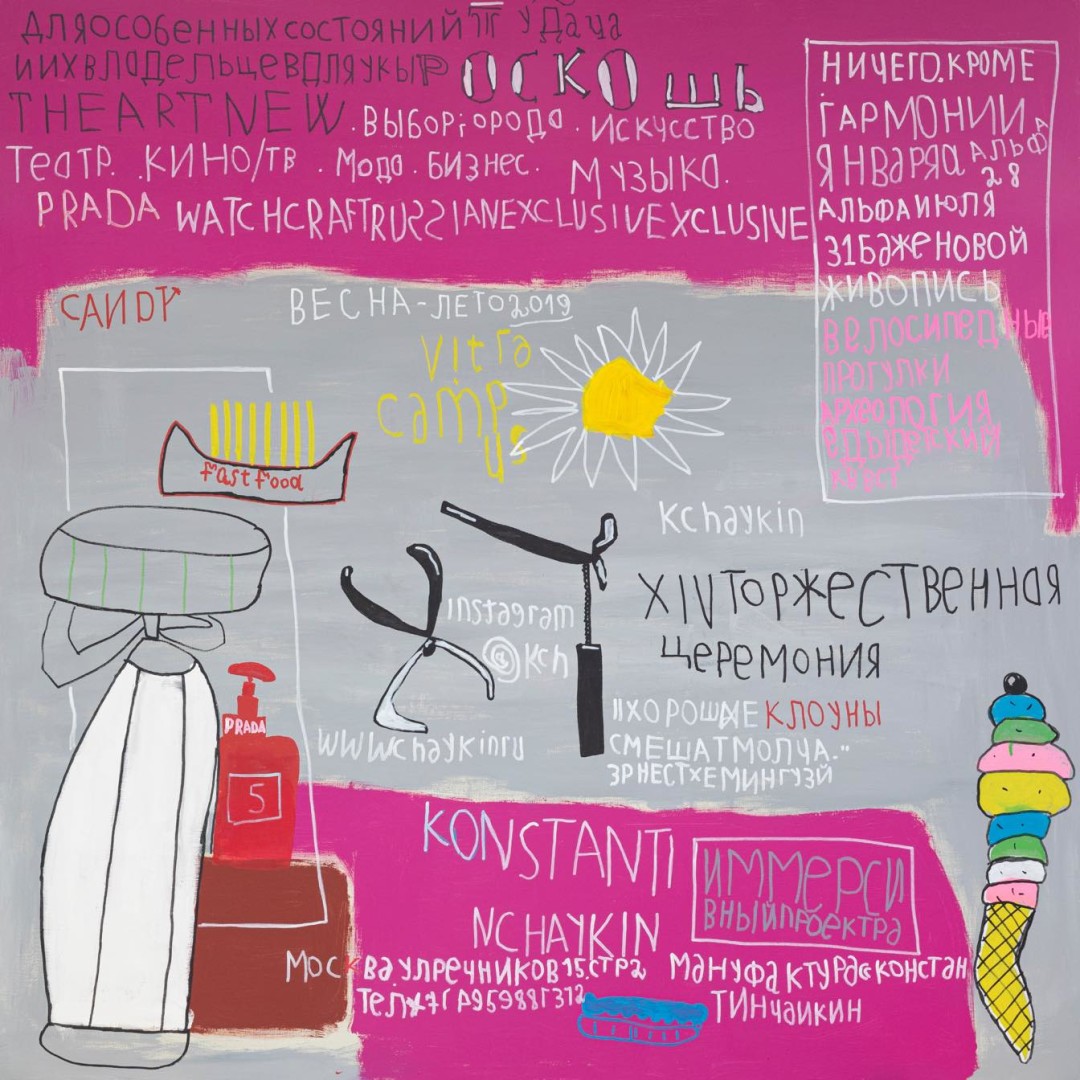 ДЛЯОСОБЕННЫХСОСТОЯНИЙ П УДАЧА
ИИХВЛАДЕЛЬЦЕВДЛЯУКЫР РОСКОШЬ
THEARTNEW.ВЫБОРГОРОДА.ИСКУССТВО
ТЕАТР. .КИНО/ТВ .МОДА.БИЗНЕС. МУЗЫКА.
PRADA WATCHCRAFTRUSSIANEXCLUSIVEXCLUSIVE
НИЧЕГО.КРОМЕ
ГАРМОНИИ
ЯНВАРЯ АЛЬФА
28
АЛЬФАИЮЛЯ
31БАЖЕНОВОЙ
ЖИВОПИСЬ
ВЕЛОСИПЕДНЫЕ
ПРОГУЛКИ
АРХЕОЛОГИЯ
КВЕСТ
CANDY
ВЕСНА-ЛЕТО2019
vitra
camp
us
fastfood
Kchaykin
instagram
@Kch
XIVТОРЖЕСТВЕННАЯ
ЦЕРЕМОНИЯ
"ХОРОШИЕ КЛОУНЫ
СМЕШАТМОЛЧА."
ЭРНЕСТХЕМИНГУЭЙ
wwwchaykinru
PRADA
5
KONSTANTI
NCHAYKIN
ИММЕРСИ
ВНЫЙПРОЕКТРА
МОСКВА.УЛРЕЧНИКОВ15.СТР2 МАНУФАКТУРА«КОНСТАН
ТИНЧАЙКИН